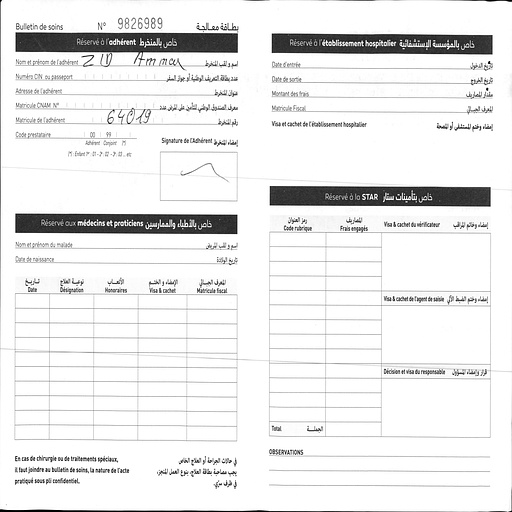 Bulletin de soins N° 9826989 بطاقة معالجة
Réservé à l'adhérent خاص بالمنخرط
Nom et prénom de l'adhérent ZID Ammar اسم و لقب المنخرط
Numéro CIN ou passeport عدد بطاقة التعريف الوطنية أو جواز السفر
Adresse de l'adhérent عنوان المنخرط
Matricule CNAM N° معرف الصندوق الوطني للتأمين على المرض عدد
Matricule de l'adhérent 64019 رقم المنخرط
Code prestataire 00 99
Adhérent Conjoint (*)
(*) : Enfant 1er : 01 - 2e : 02 - 3e : 03 ... etc
Signature de l'Adhérent إمضاء المنخرط
Réservé aux médecins et praticiens خاص بالأطباء والممارسين
Nom et prénom du malade اسم و لقب المريض
Date de naissance تاريخ الولادة
تاريخ نوعية العلاج الأتعاب الإمضاء و الختم المعرف الجبائي
Date Désignation Honoraires Visa & cachet Matricule fiscal
En cas de chirurgie ou de traitements spéciaux,
il faut joindre au bulletin de soins, la nature de l'acte
pratiqué sous pli confidentiel.
في حالات الجراحة أو العلاج الخاص
يجب مصاحبة بطاقة العلاج، بنوع العمل المنجز،
في ظرف سري.
Réservé à l'établissement hospitalier خاص بالمؤسسة الإستشفائية
Date d'entrée تاريخ الدخول
Date de sortie تاريخ الخروج
Montant des frais مقدار المصاريف
Matricule Fiscal المعرف الجبائي
Visa et cachet de l'établissement hospitalier إمضاء وختم المستشفى أو المصحة
Réservé à la STAR خاص بتأمينات ستار
رمز العنوان المصاريف
Code rubrique Frais engagés
Visa & cachet du vérificateur إمضاء وخاتم المراقب
Visa & cachet de l'agent de saisie إمضاء وختم الضبط الآلي
Décision et visa du responsable قرار وإمضاء المسؤول
Total الجملة
OBSERVATIONS